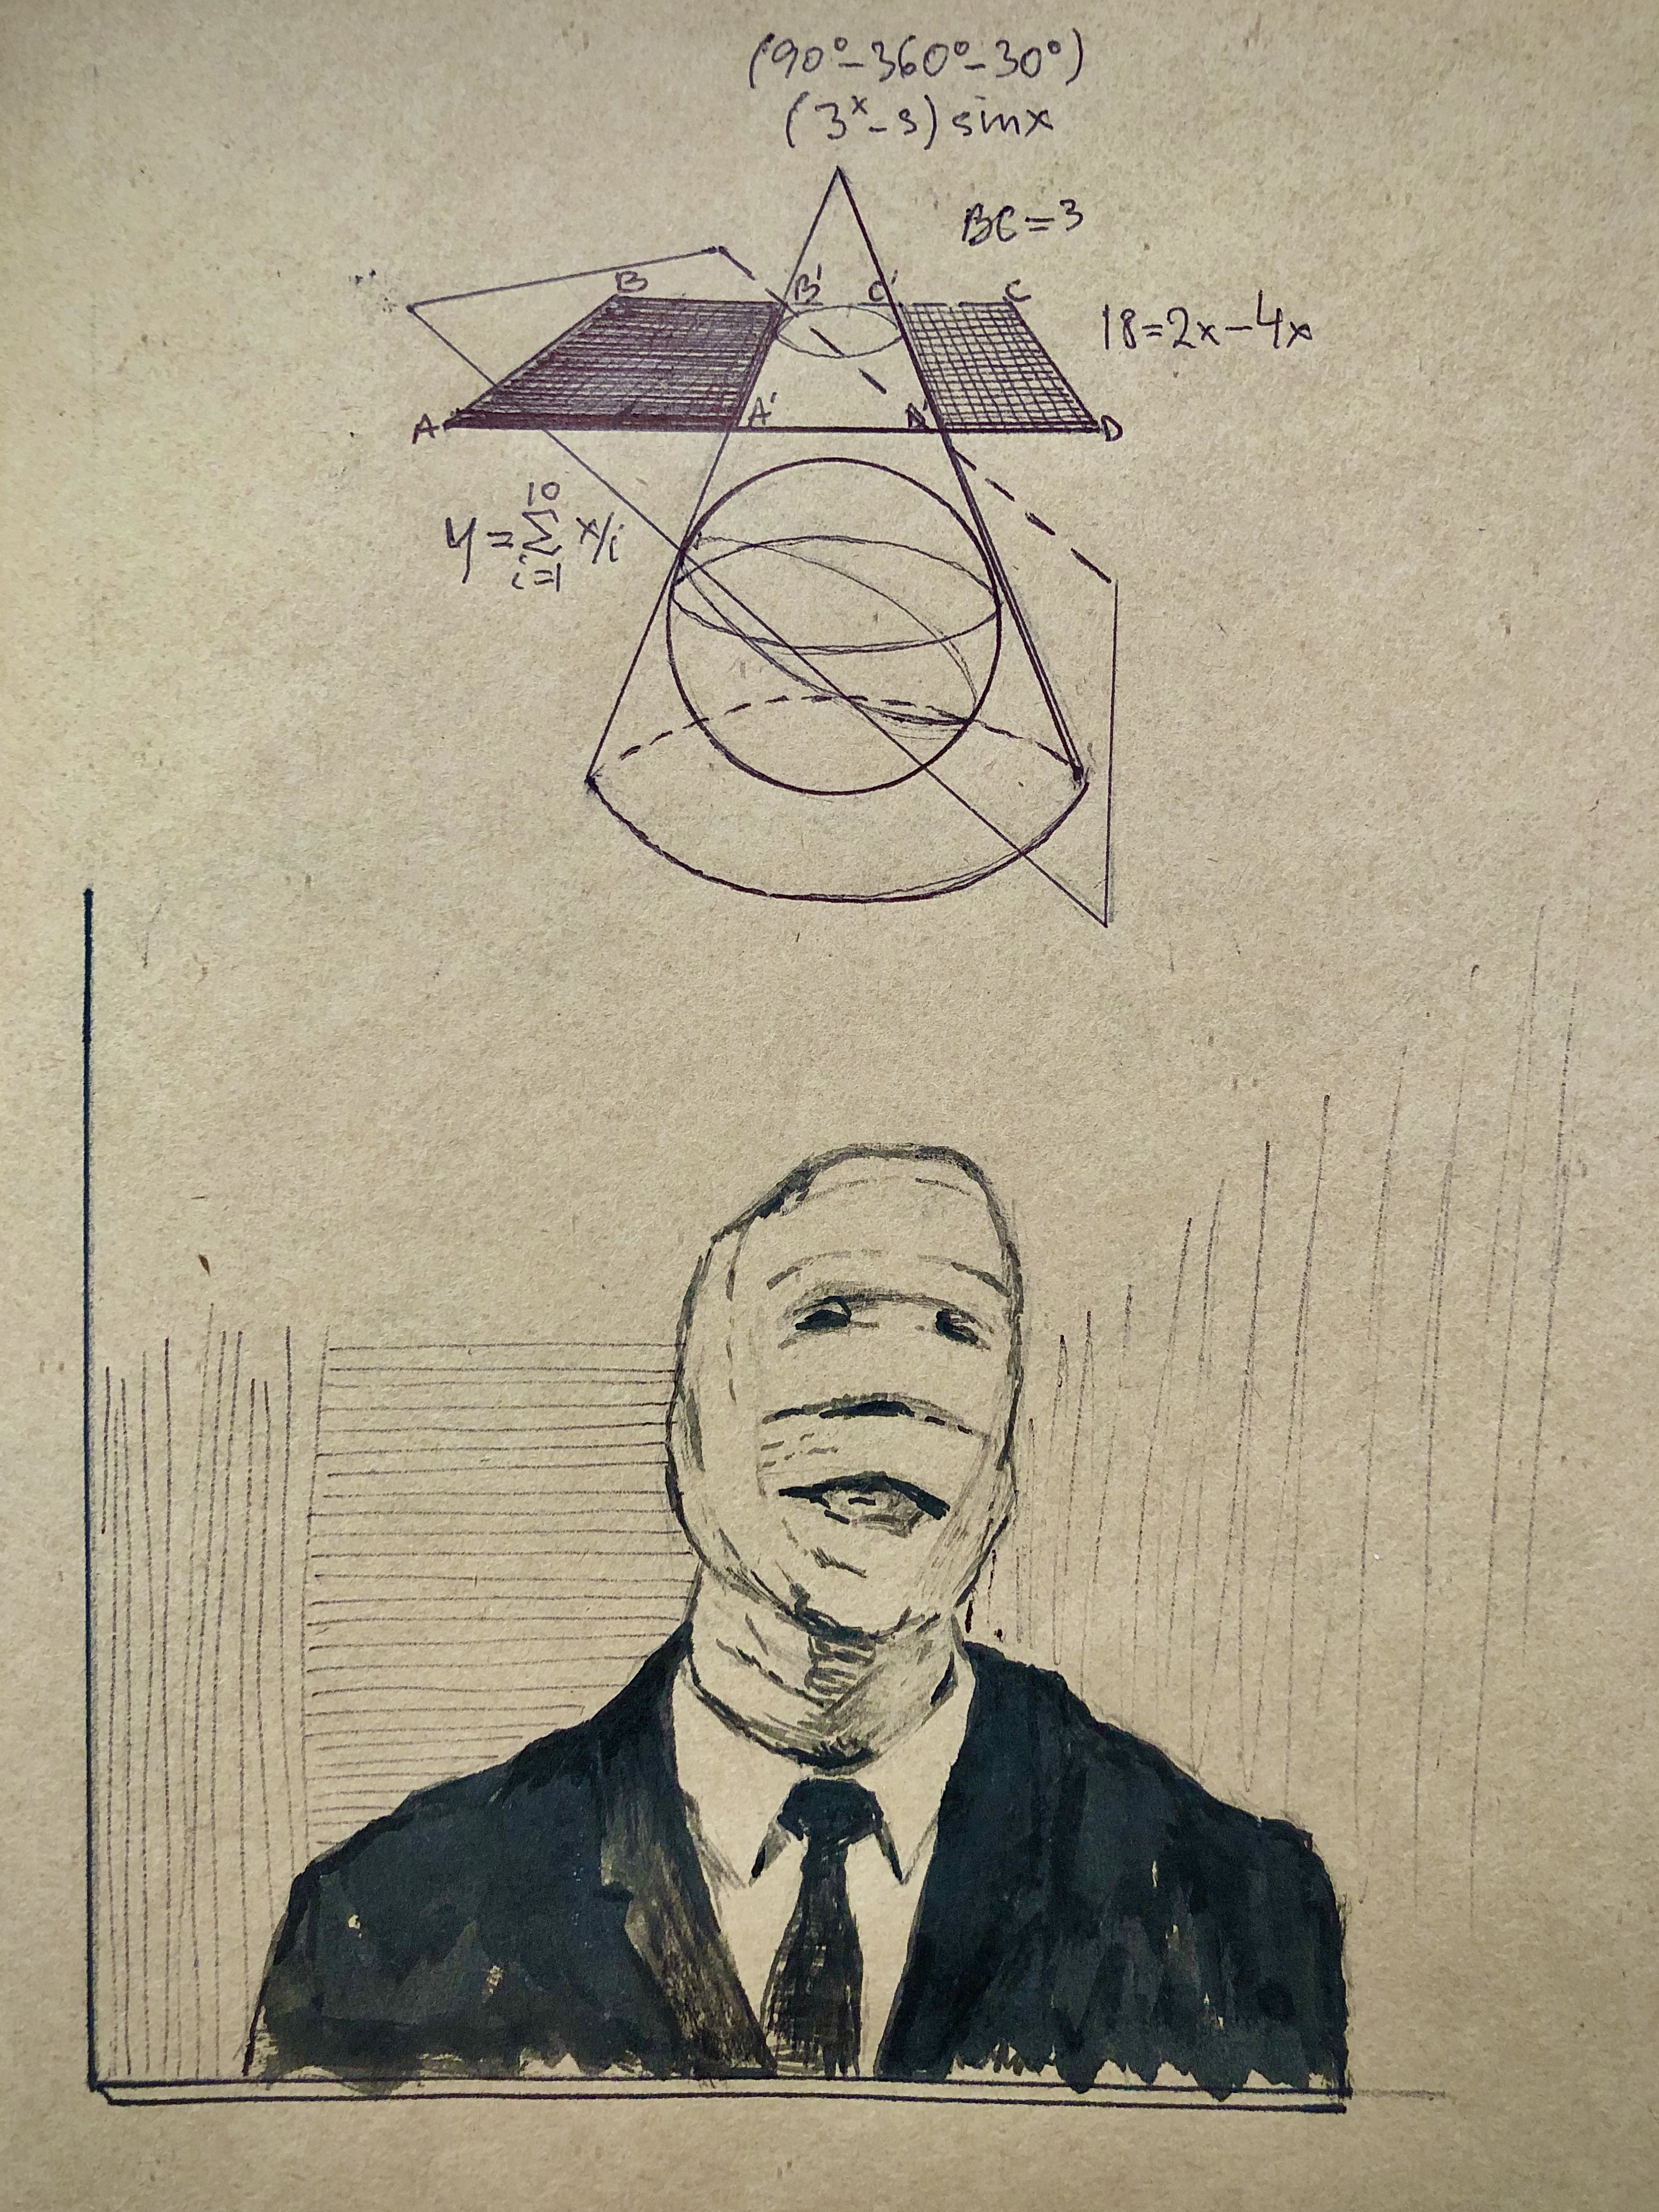 (90°-360°-30°)
(3ˣ-3) sinx
BC=3
B B' C' C
18=2x-4x
A A' D' D
10
y=∑ x/i
i=1